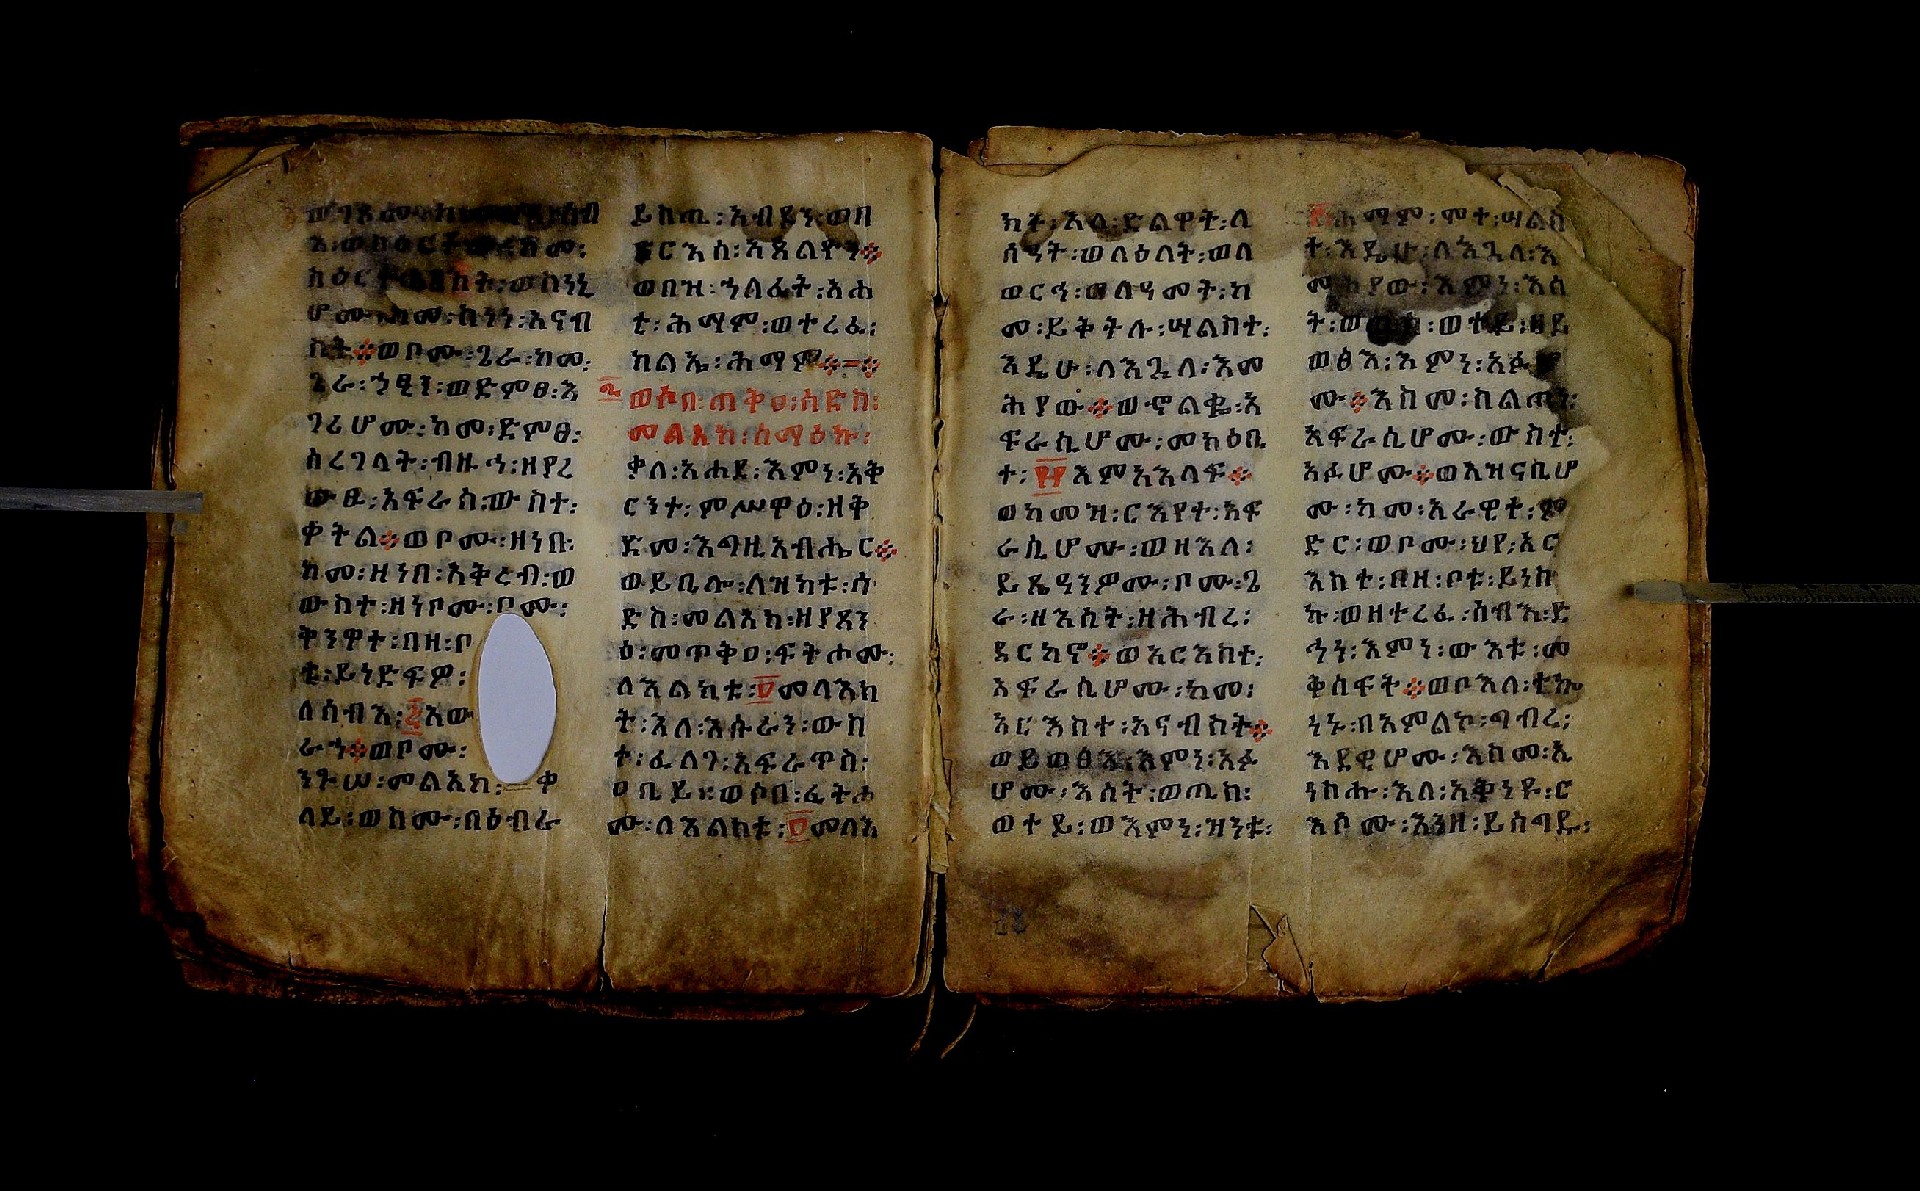 እ፡ወስዕርቶሙ፡ከመ፡
ስዕርተ፡አንስት፡ወስነኒ
ሆሙ፡ከመ፡ስነነ፡አናብ
ስት፨ወቦሙ፡ጌራ፡ከመ፡
ጌራ፡ኀፂን፡ወድምፀ፡እ
ገሪሆሙ፡ከመ፡ድምፀ፡
ሰረገላት፡ብዙኅ፡ዘየረ
ውፁ፡አፍራስ፡ውስተ፡
ቀትል፨ወቦሙ፡ዘነበ፡
ከመ፡ዘነበ፡አቅረብ፡ወ
ውስተ፡ዘነቦሙ፡ቦሙ፡
ቅንዋተ፡በዘ፡ቦ
ቱ፡ይነድፍዎ፡
ለሰብእ፡፭አው
ራኀ፨ወቦሙ፡
ንጉሠ፡መልአከ፡ቀ
ላይ፡ወስሙ፡በዕብራ
ይስጢ፡አብዶን፡ወበ
ፍርእስ፡አጶልዮን፨
ወበዝ፡ኀለፈት፡አሐ
ቲ፡ሕማም፡ወተረፈ፡
ክልኤ፡ሕማም፨
ወሶበ፡ጠቅዐ፡ሳድስ፡
መልአክ፡ሰማዕኩ፡
ቃለ፡አሐደ፡እምነ፡አቅ
ርንተ፡ምሥዋዕ፡ዘቅ
ድመ፡እግዚአብሔር፨
ወይቤሎ፡ለዝክቱ፡ሳ
ድስ፡መልአክ፡ዘያጸን
ዕ፡መጥቅዐ፡ፍትሖሙ፡
ለእልክቱ፡፬መላእክ
ት፡እለ፡እሱራን፡ውስ
ተ፡ፈለገ፡አፍራጥስ፡
ዐቢይ፡ወሶበ፡ፈትሐ
ሙ፡ለእልክቱ፡፬መላእ
ክት፡እለ፡ድልዋት፡ለ
ሰዓት፡ወለዕለት፡ወለ
ወርኅ፡ወለዓመት፡ከ
መ፡ይቅትሉ፡ሣልስተ፡
እዴሁ፡ለእጓለ፡እመ
ሕያው፨ወኆልቊ፡አ
ፍራሲሆሙ፡መክዕቢ
ተ፡፼እምአእላፍ፨
ወከመዝ፡ርእየተ፡አፍ
ራሲሆሙ፡ወዘእለ፡
ይጼዓንዎሙ፡ቦሙ፡ጌ
ራ፡ዘእሳት፡ዘሕብረ፡
ደርከኖ፨ወአርእስተ፡
አፍራሲሆሙ፡ከመ፡
አርእስተ፡አናብስት፨
ወይወፅእ፡እምነ፡አፉ
ሆሙ፡እሳት፡ወጢስ፡
ወተይ፡ወእምነ፡ዝንቱ፡
፫ሕማም፡ሞተ፡ሣልስ
ት፡እዴሁ፡ለእጓለ፡እ
መሕያው፡እምነ፡እሳ
ት፡ወጢስ፡ወተይ፡ዘይ
ወፅእ፡እምነ፡አፉሆ
ሙ፨እስመ፡ስልጣነ፡
አፍራሲሆሙ፡ውስተ፡
አፉሆሙ፨ወአዝናቢሆ
ሙ፡ከመ፡አራዊተ፡ም
ድር፡ወቦሙ፡ህየ፡አር
እስተ፡በዘ፡ቦቱ፡ይነክ
ኩ፡ወዘተረፈ፡ሰብእ፡ድ
ኅነ፡እምነ፡ውእቱ፡መ
ቅሰፍት፨ወቦእለ፡ቲኬ
ነኑ፡በአምልኮ፡ግብረ፡
እደዊሆሙ፡እስመ፡ኢ
ነስሑ፡እለ፡አቅነዩ፡ር
እሶሙ፡እንዘ፡ይሰግዱ፡